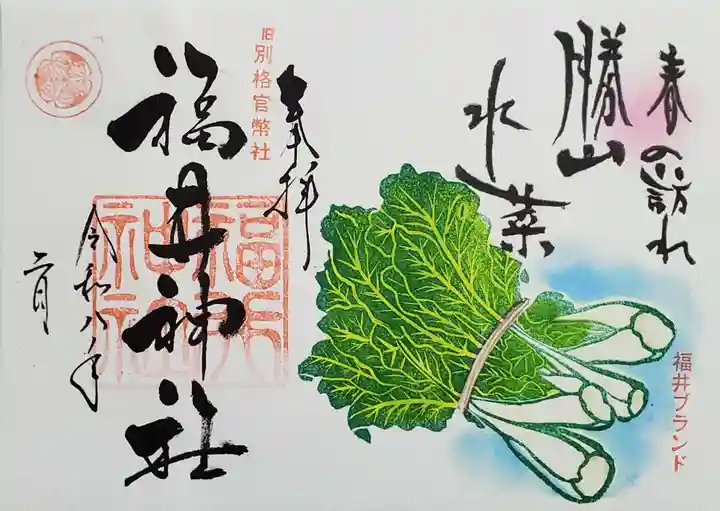 春の訪れ
勝山
水菜
福井ブランド
奉拝
旧別格官幣社
福井神社
福井神社
令和八年
二月